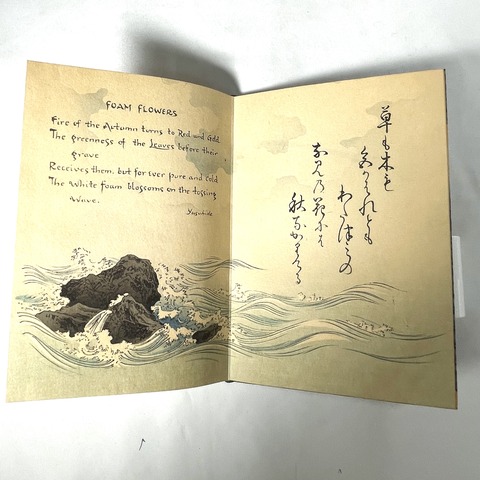 FOAM FLOWERS
Fire of the Autumn turns to Red and Gold
The greenness of the Leaves before their
grave
Receives them, but for ever pure and cold
The white foam blossoms on the tossing
wave.
Yasuhide
草も木も
色かはれとも
わたつミの
なみ乃花にそ
秋なかりける